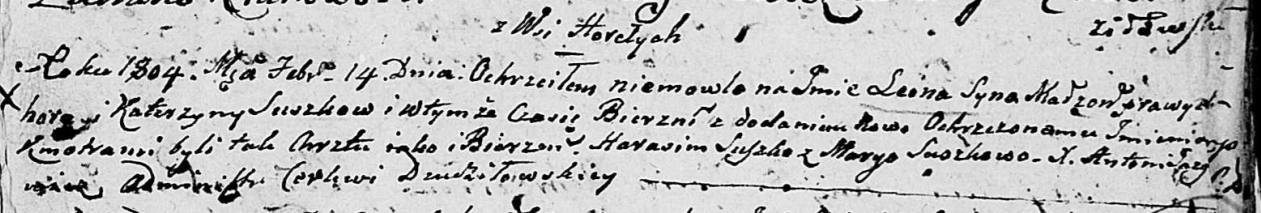 z Wsi Horełych
Roku 1804. Mca Febr. 14. Dnia. Ochrzciłem niemowle na Imie Leona Syna Małżon prawych
i Katerzyny Suszkow i w tymże Czasie Bierzm z dodaniem Nowo Ochrzczonemu Imienia
Kmotrami byli tak Chrztu iako i Bierzm Harasim Suszko z Maryo Suszkowo. X. Antoni
Administr Cerkwi Dzudziłowskiey